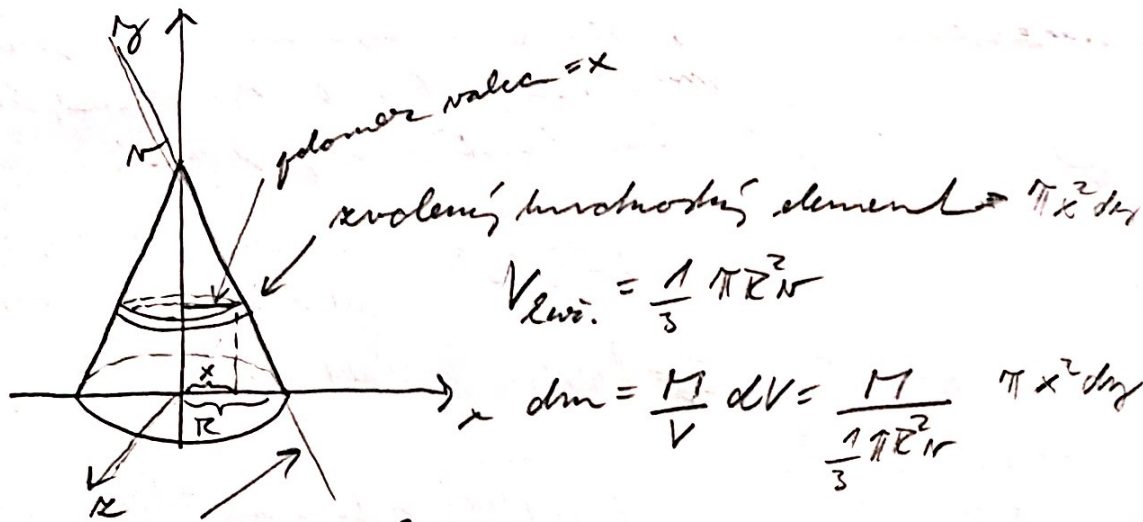 y
v
polomer valca = x
zvolený hmotnostný element πx²dy
V_kuž. = 1/3 πR²v
x
R
x
dm = M/V dV = M / (1/3 πR²v) πx²dy
z